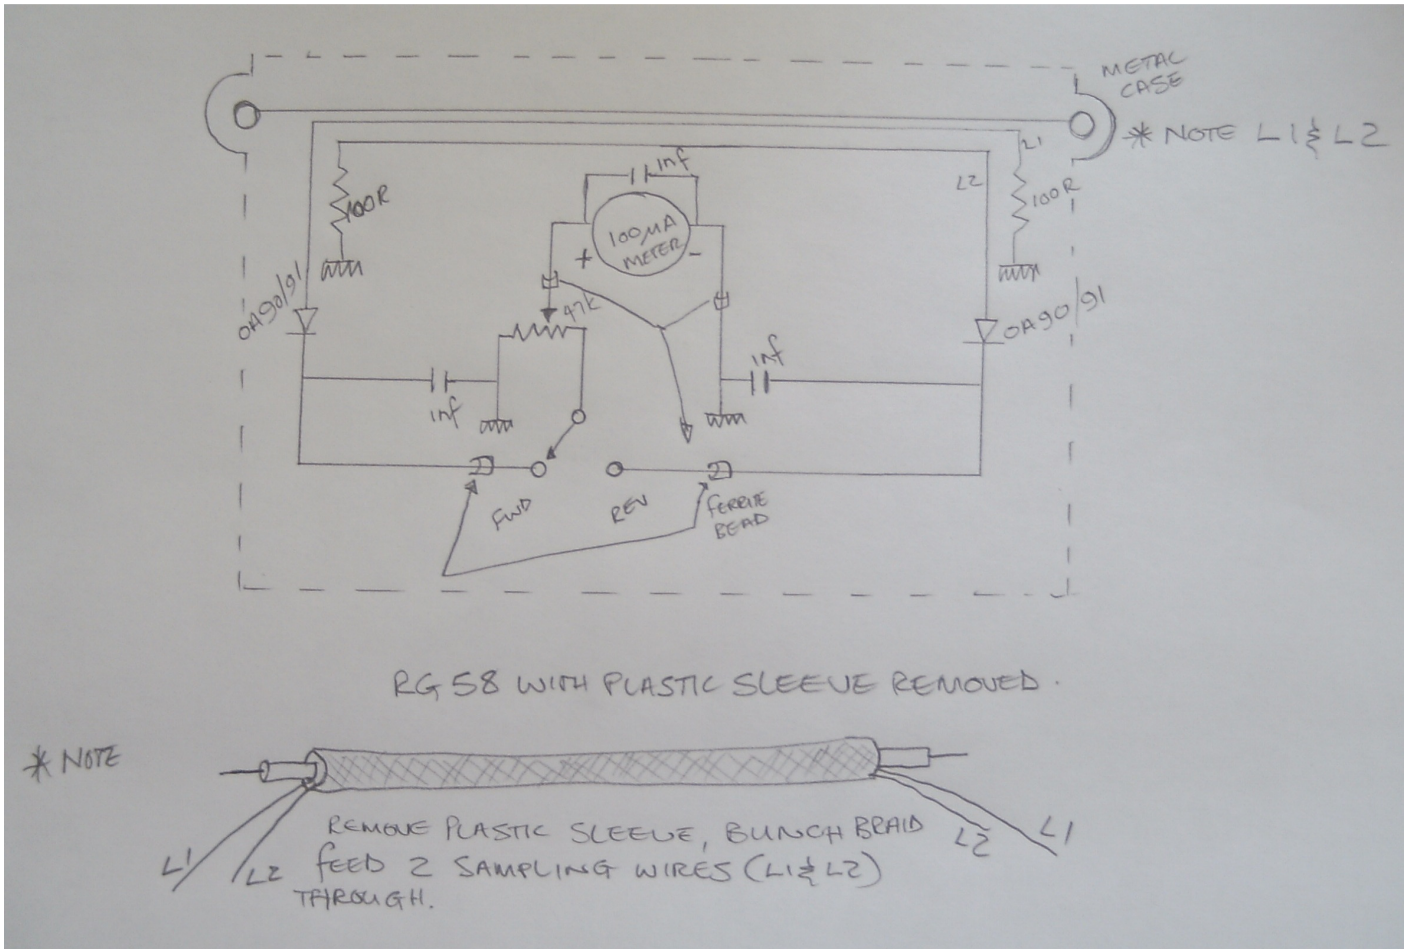 METAL
CASE
* NOTE L1 & L2
L1
1nf
L2
100R
100R
100µA
METER
+ -
OA90/91
47K
OA90/91
1nf
1nf
FWD
REV
FERRITE
BEAD
RG58 WITH PLASTIC SLEEVE REMOVED.
* NOTE
REMOVE PLASTIC SLEEVE, BUNCH BRAID
L1
L2
FEED 2 SAMPLING WIRES (L1 & L2)
THROUGH.
L2
L1